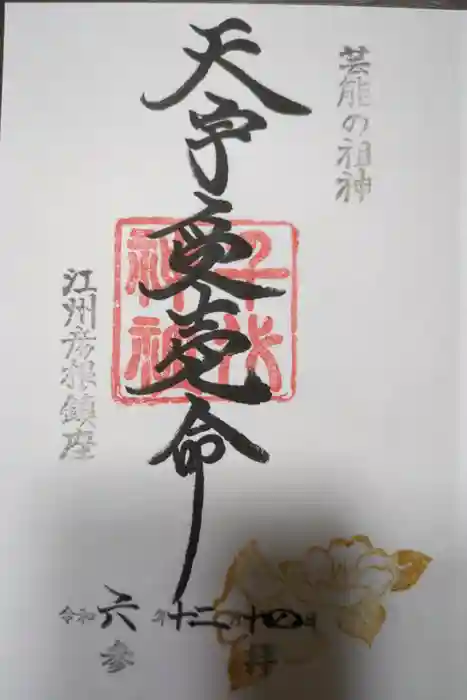 芸能の祖神
天宇受売命
千代神社
江州彦根鎮座
令和六年十二月十四日
参拝